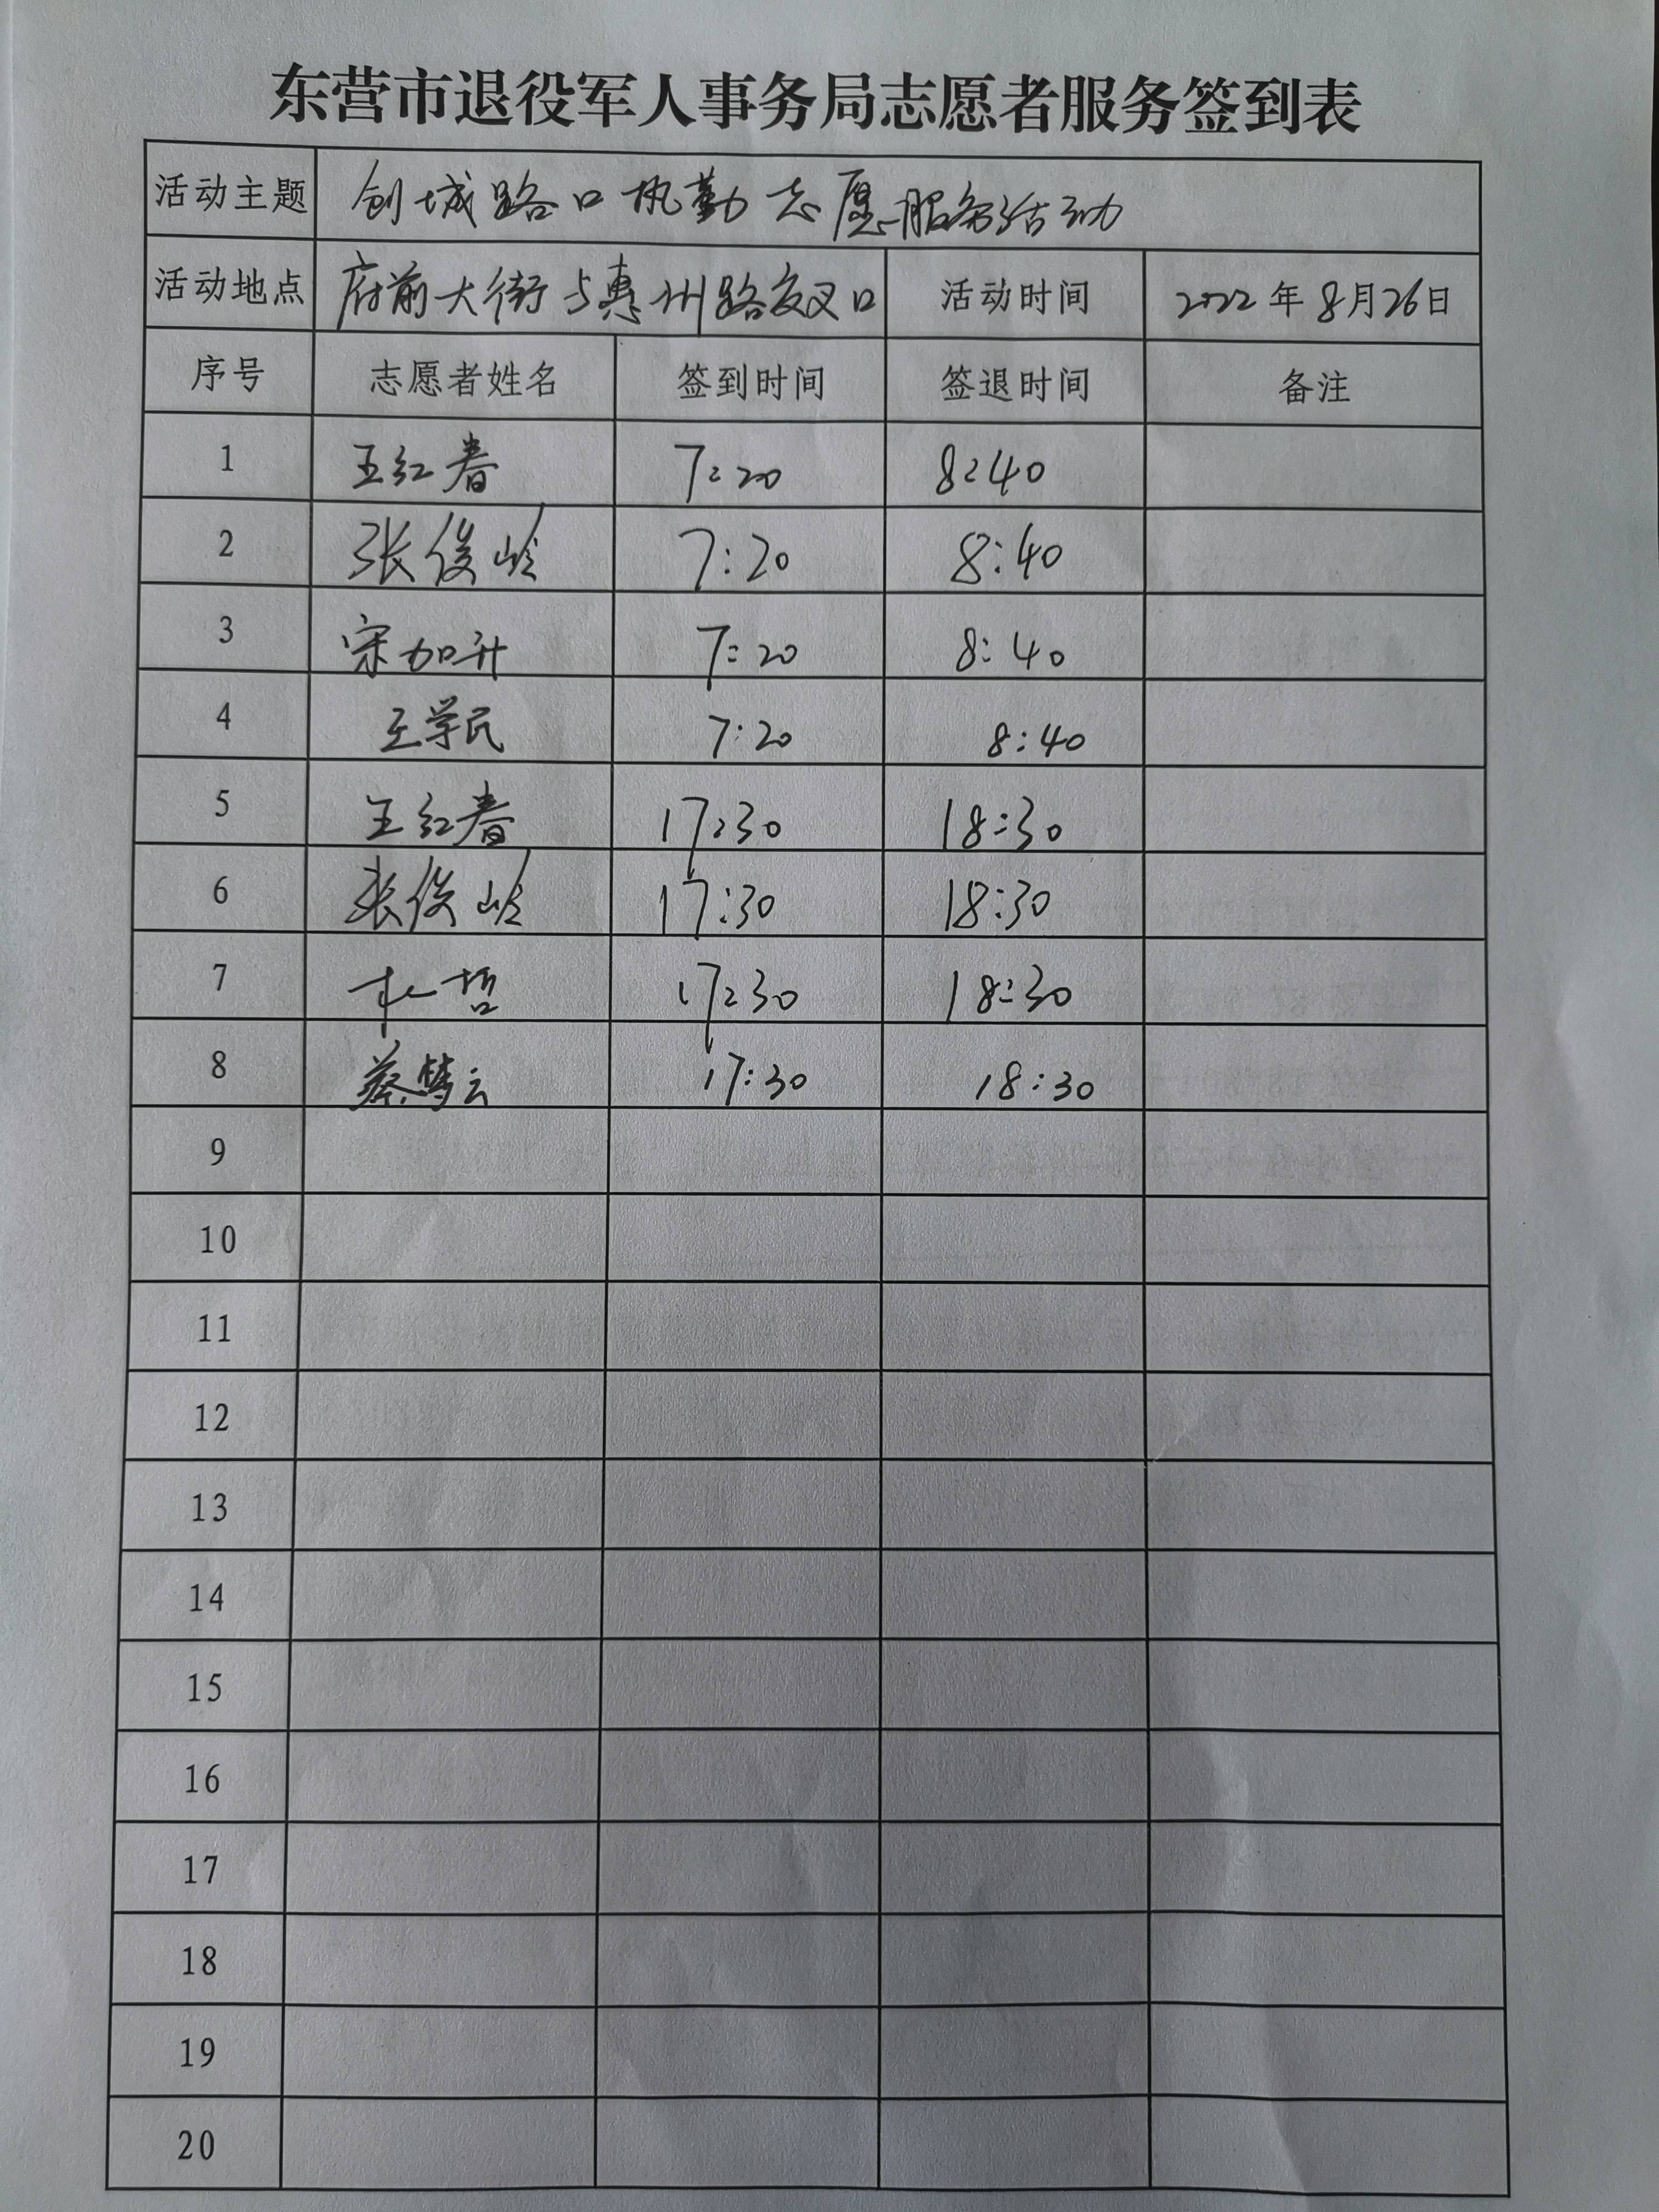 东营市退役军人事务局志愿者服务签到表
活动主题 创城路口执勤志愿服务活动
活动地点 府前大街与惠州路交叉口 活动时间 2022年8月26日
序号 志愿者姓名 签到时间 签退时间 备注
1 王红春 7:20 8:40
2 张俊岭 7:20 8:40
3 宋加升 7:20 8:40
4 王学民 7:20 8:40
5 王红春 17:30 18:30
6 张俊岭 17:30 18:30
7 杜哲 17:30 18:30
8 蔡云 17:30 18:30
9
10
11
12
13
14
15
16
17
18
19
20